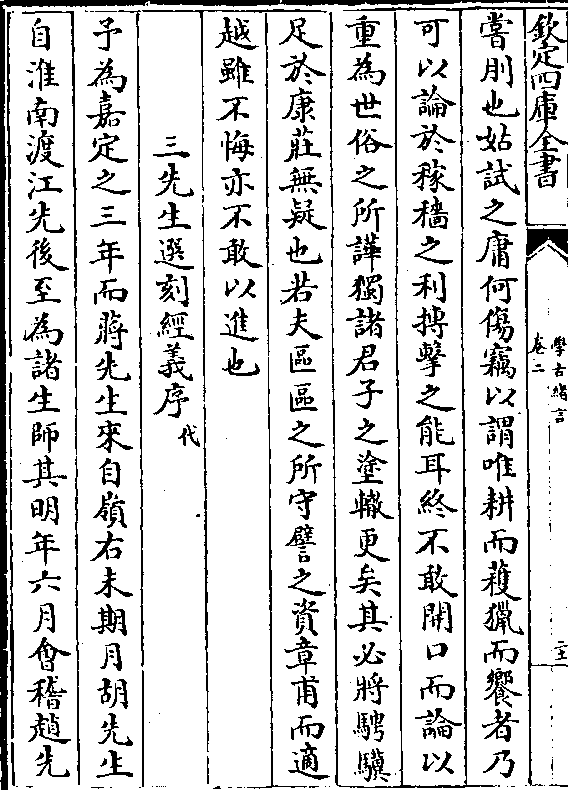 欽定四庫全書
學古緒言
卷二
嘗刖也姑試之庸何傷竊以謂唯耕而䕶獵而饗者乃
可以論於稼穡之利搏擊之能耳終不敢開口而論以
重為世俗之所譁獨諸君子之塗轍更矣其必將騁驥
足於康莊無疑也若夫區區之所守譬之資章甫而適
越雖不悔亦不敢以進也
三先生選刻經義序代
予為嘉定之三年而蔣先生來自嶺右未期月胡先生
自淮南渡江先後至為諸生師其明年六月會稽趙先